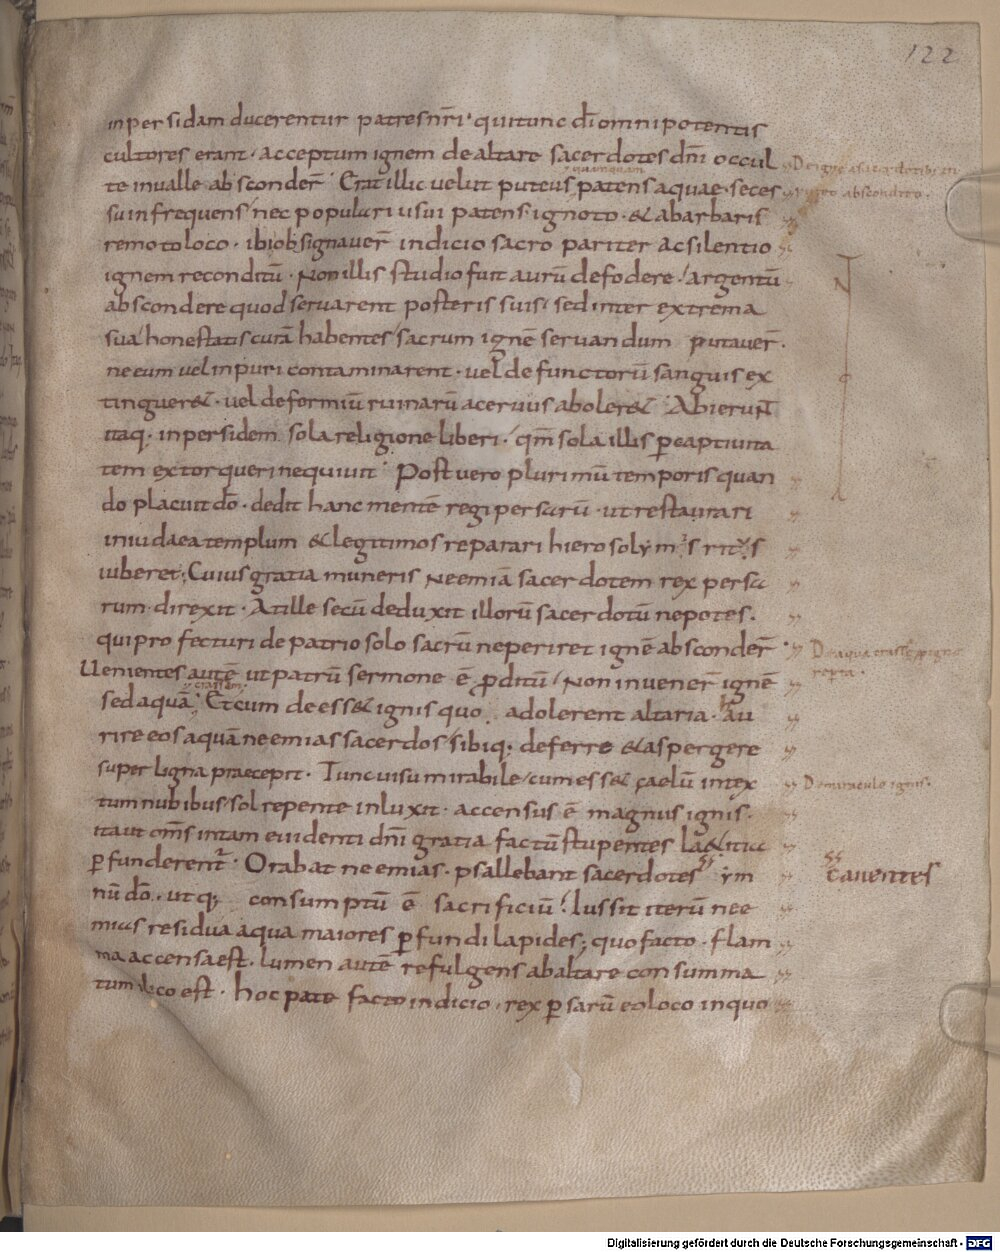 122
in persidam ducerentur patres nr̄i · qui tunc dī omnipotentis
cultores erant · acceptum ignem de altare sacerdotes dn̄i occul
De igne a sacerdotib; in
quamquam
te in valle absconder̄ · Erat illic velut puteus patens aquae · seces
puteo abscondito ·
su infrequens / nec populari usui patens · ignoto · & a barbaris
remoto loco · ibi obsignaver̄ indicio sacro pariter ac silentio
ignem reconditū · Non illis studio fuit aurū defodere / argentū
abscondere quod servarent posteris suis / sed inter extrema
sua / honestatis curā habentes / sacrum ignē servandum putaver̄ ·
ne eum vel inpuri contaminarent · vel defunctorū sanguis ex
tinguer& · vel deformiū ruinarū acervus aboler& · Abierunt
itaq· in persidem sola religione liberi · / qm̄ sola illis p captivita
tem extorqueri nequivit · Post vero plurimū temporis quan
do placuit dō · dedit hanc mentē regi persarū · ut restaurari
in iudaea templum & legitimos reparari hierosolymis ritus
iuberet; Cuius gratia muneris Neemiā sacerdotem rex persa
rum · direxit · At ille secū deduxit illorū sacerdotū nepotes ·
qui profecturi de patrio solo sacrū ne periret ignē absconder̄
De aqua crassa p igne
Uenientes autē ut patrū sermone ē pditū / Non invener̄ ignē
reperta ·
crassam
sed aquā; Et cum deess& ignis quo adolerent altaria · hau
rire eos aquā neemias sacerdos / sibiq· deferre & aspergere
super ligna praecepit · Tunc visu mirabile / cum ess& çaelū intex
De miraculo ignis ·
tum nubibus / sol repente inluxit · accensus ē magnus ignis ·
ita ut om̄s in tam evidenti dn̄i gratia factū stupentes la&itia
pfunderent̄ · Orabat neemias · psallebant sacerdotes ym
canentes
nū dō · ut q; consumptū ē sacrificiū · / Iussit iterū nee
mias residua aqua maiores pfundi lapides; quo facto · flam
ma accensa est · lumen autē refulgens ab altare consumma
tum ilico est · hoc patefacto indicio · rex psarū eo loco in quo
Digitalisierung gefördert durch die Deutsche Forschungsgemeinschaft - DFG